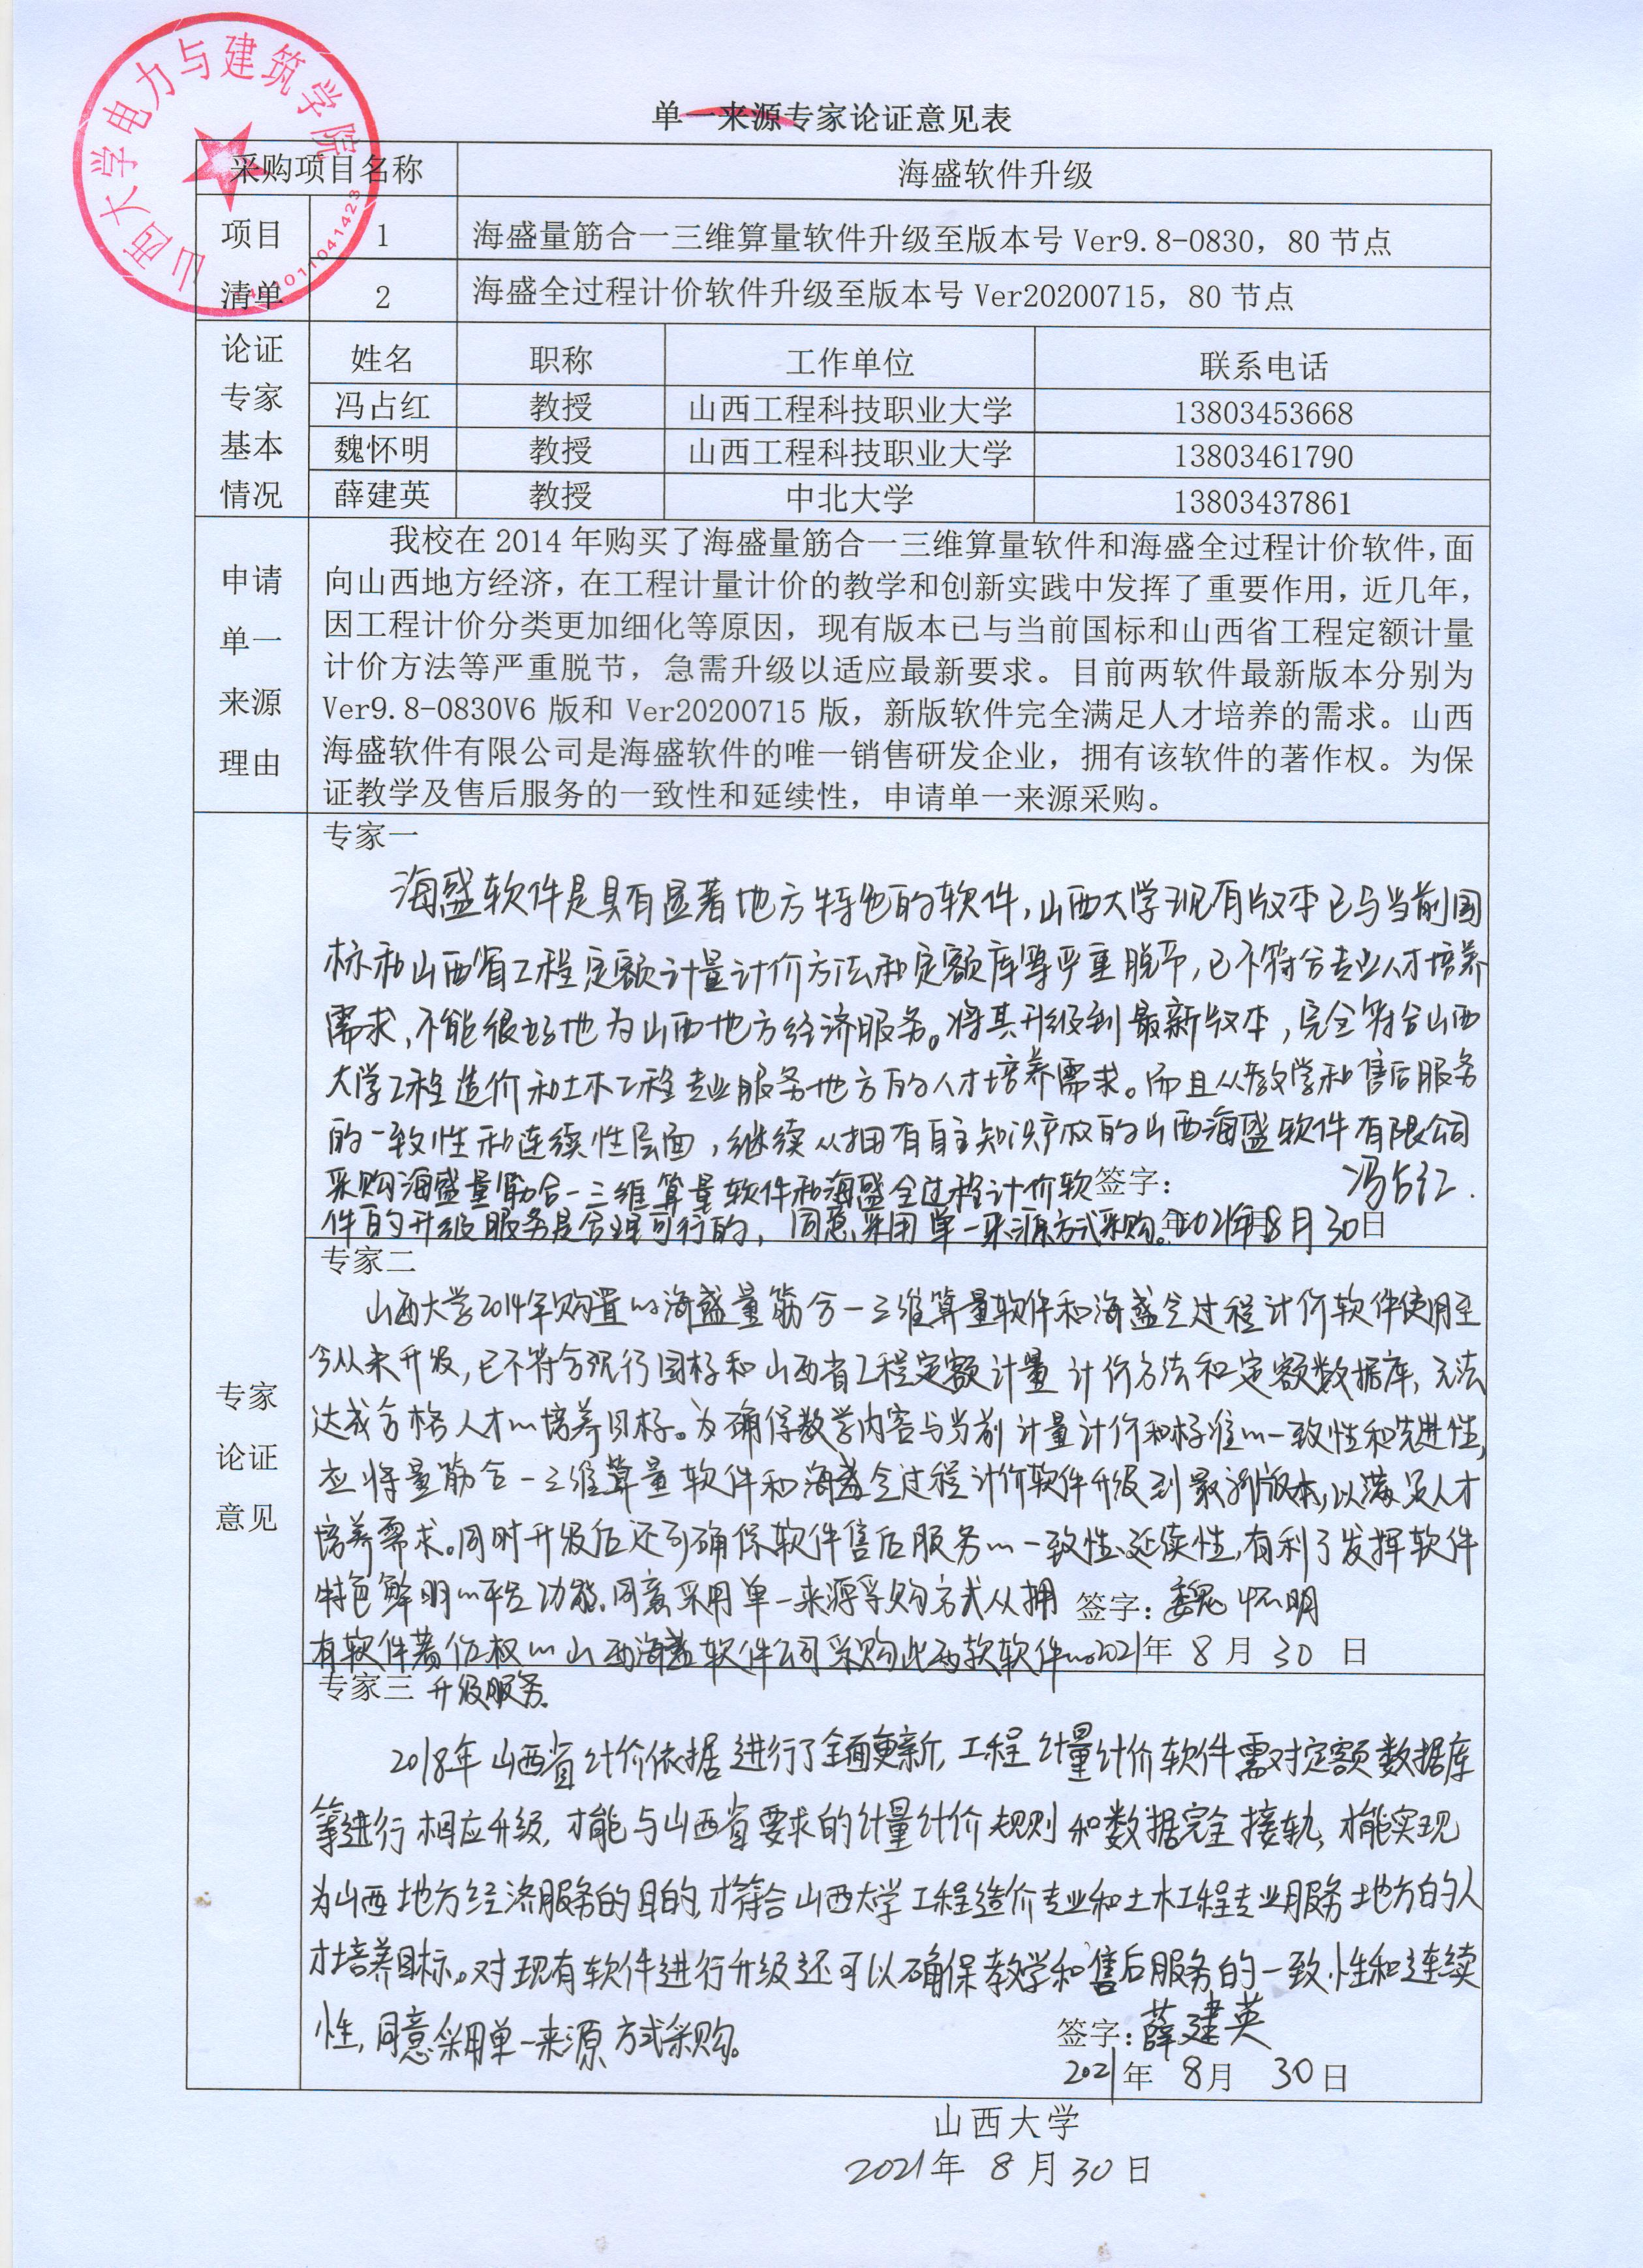 山西大学电力与建筑学院
单一来源专家论证意见表
采购项目名称 海盛软件升级
项目清单
1 海盛量筋合一三维算量软件升级至版本号 Ver9.8-0830，80 节点
2 海盛全过程计价软件升级至版本号 Ver20200715，80 节点
论证专家基本情况
姓名 职称 工作单位 联系电话
冯占红 教授 山西工程科技职业大学 13803453668
魏怀明 教授 山西工程科技职业大学 13803461790
薛建英 教授 中北大学 13803437861
申请单一来源理由
我校在 2014 年购买了海盛量筋合一三维算量软件和海盛全过程计价软件，面
向山西地方经济，在工程计量计价的教学和创新实践中发挥了重要作用，近几年，
因工程计价分类更加细化等原因，现有版本已与当前国标和山西省工程定额计量
计价方法等严重脱节，急需升级以适应最新要求。目前两软件最新版本分别为
Ver9.8-0830V6 版和 Ver20200715 版，新版软件完全满足人才培养的需求。山西
海盛软件有限公司是海盛软件的唯一销售研发企业，拥有该软件的著作权。为保
证教学及售后服务的一致性和延续性，申请单一来源采购。
专家论证意见
专家一
海盛软件是具有显著地方特色的软件，山西大学现有版本已与当前国
标和山西省工程定额计量计价方法和定额库等严重脱节，已不符合专业人才培养
需求，不能很好地为山西地方经济服务。将其升级到最新版本，完全符合山西
大学工程造价和土木工程专业服务地方的人才培养需求。而且从教学和售后服务
的一致性和连续性层面，继续从拥有自主知识产权的山西海盛软件有限公司
采购海盛量筋合一三维算量软件和海盛全过程计价软 签字： 冯占红
件的升级服务是合理可行的，同意采用单一来源方式采购。2021年8月30日
专家二
山西大学2014年购置的海盛量筋合一三维算量软件和海盛全过程计价软件使用至
今从未升级，已不符合现行国标和山西省工程定额计量计价方法和定额数据库，无法
达成合格人才的培养目标。为确保教学内容与当前计量计价和标准的一致性和先进性，
应将量筋合一三维算量软件和海盛全过程计价软件升级到最新版本，以满足人才
培养需求。同时升级后还可确保软件售后服务的一致性、延续性，有利于发挥软件
特色鲜明的平台功能。同意采用单一来源采购方式从拥 签字：魏怀明
有软件著作权的山西海盛软件公司采购此两款软件的 2021年 8月30日
专家三 升级服务。
2018年山西省计价依据进行了全面更新，工程计量计价软件需对定额数据库
等进行相应升级，才能与山西省要求的计量计价规则和数据完全接轨，才能实现
为山西地方经济服务的目的，才符合山西大学工程造价专业和土木工程专业服务地方的人
才培养目标。对现有软件进行升级还可以确保教学和售后服务的一致性和连续
性，同意采用单一来源方式采购。 签字：薛建英
2021年 8月 30日
山西大学
2021年 8月30日